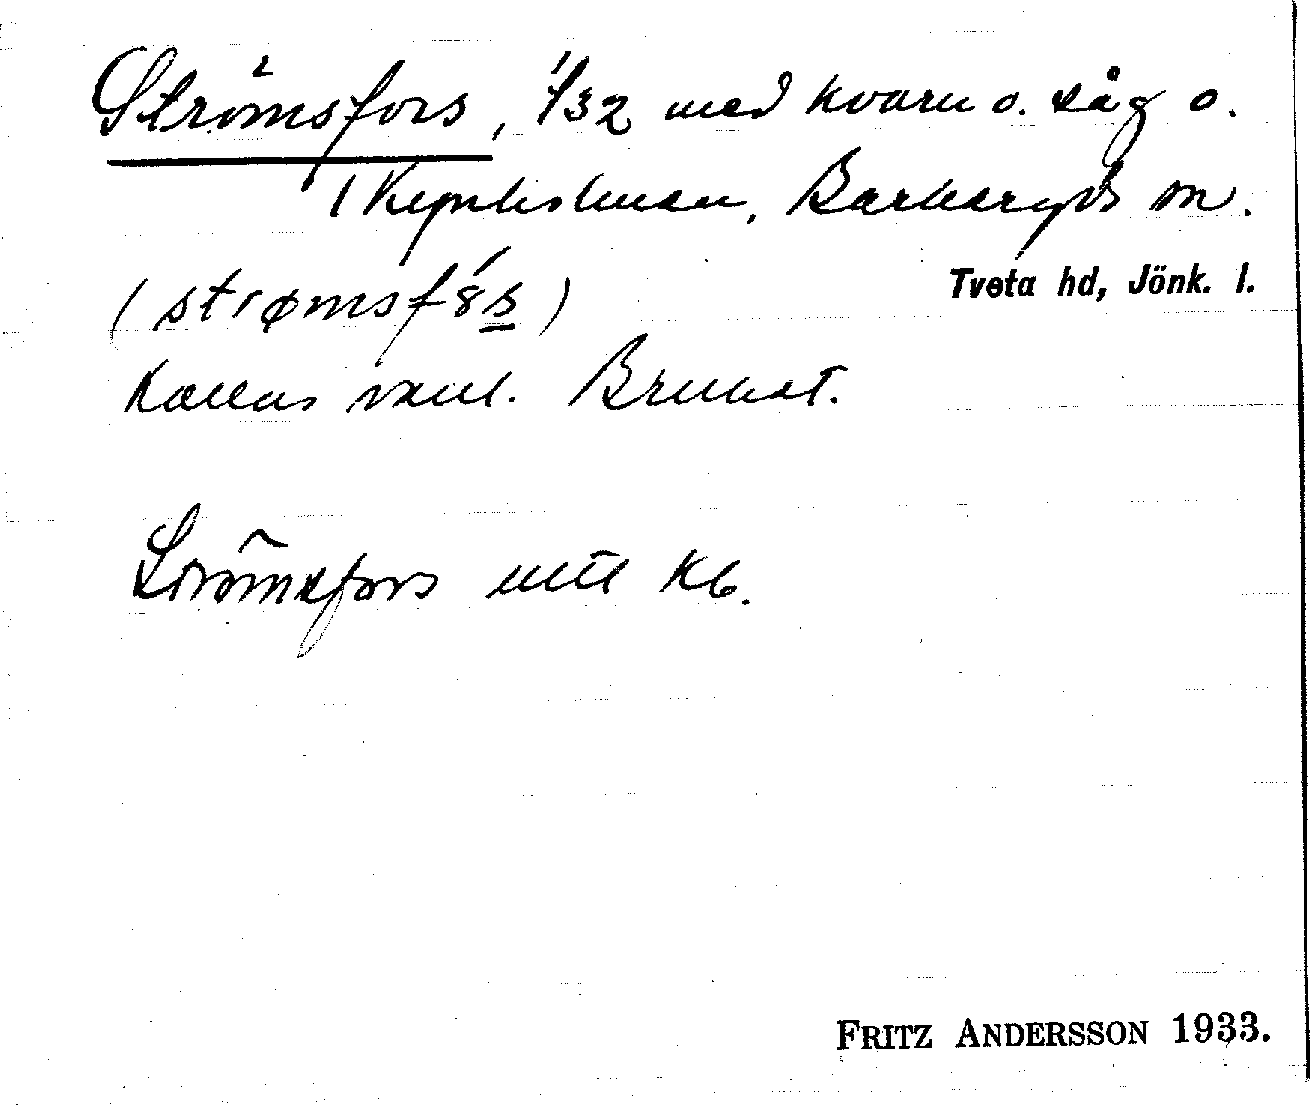 Strömsfors, 1/32 med kvarn o. såg o.
Barkeryds sn.
Tveta hd, Jönk. l.
(strømsf8s)
Kallas vanl. Bruket.
Strömsfors utt Kb.
FRITZ ANDERSSON 1933.